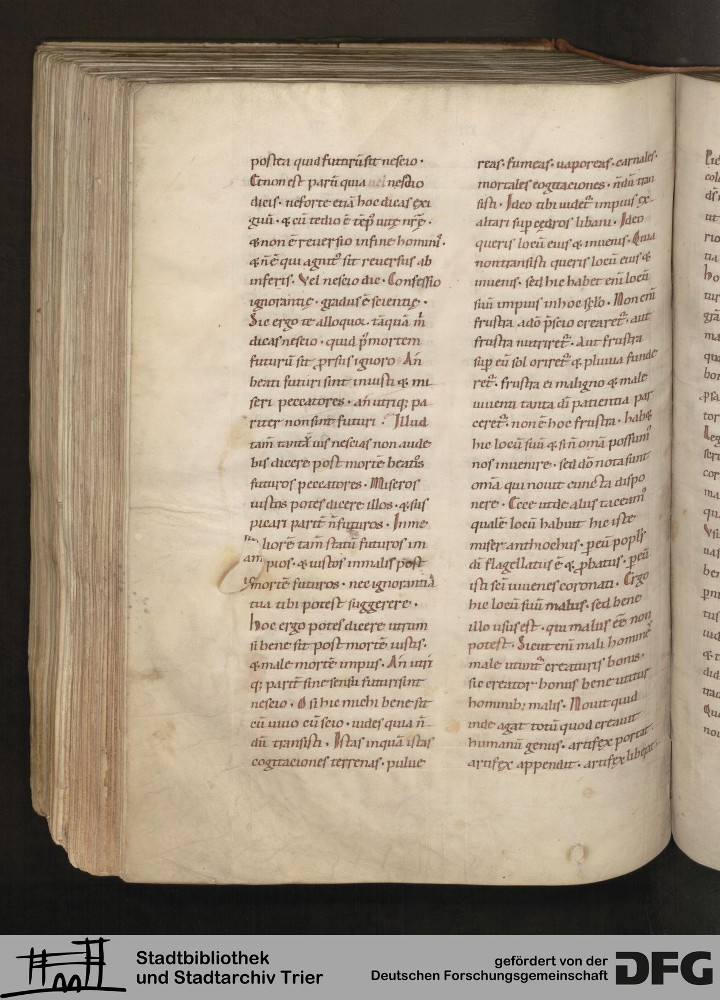 postea quid futurū sit nescio·
Et non est parū quia nescio
dicis· ne forte etiā hoc dicas exi
guū· & cū tedio ē tēp' uite nr̄ę·
& non ē reuersio in fine homini'·
& n̄ ē qui agnit' sit reuersus ab
inferis· Vel nescio dic· Confessio
ignorantię· gradus ē scientię·
Sic ergo te alloquor· tāquā m̄
dicas nescio· quid p' mortem
futurū sit prorsus ignoro An
beati futuri sint iniusti & mi
seri peccatores· an utriq; pa
riter non sint futuri· Illud
tam̄ tantū uis nescias non aude
bis dicere post mortē beatos
futuros peccatores· Miseros
iustos potes dicere illos· & sus
picari partē n̄ futuros· In me
liorē tam̄ statū futuros im
pios· & iustos in malis post
mortē futuros· nec ignorantia
tua tibi potest suggerere·
Hoc ergo potes dicere utrum
si bene sit post mortē iustis·
& male mortē impiis· An utri
q; partē sine sensu futuri sint
nescio· O si hic michi bene sit
cū uiuo cū scio· uides quia n̄
dū transisti· Istas inquā istas
cogitaciones terrenas· pulue
reas· fumeas· uaporeas· carnales·
mortales cogitaciones· n̄dū tran
sisti· Ideo tibi uidet' impius ex
altari sup cędros libani· Ideo
queris locū eius & inuenis· Quia
non transisti queris locū eius &
inuenis· sed hic habet eni locū
suū impius in hoc sclo· Non eni
frustra a dō p̄scio crearet'· aut
frustra nutriret'· Aut frustra
sup eū sol oriret' & pluuia funde
ret'· frustra ei maligno & male
uiuenti tanta di patientia par
ceret'· non ē hoc frustra· hab&
hic locū suū & si n̄ omā possum'
nos inuenire· sed dō nota sunt
omā qui nouit cuncta dispo
nere· Ecce ut de aliis taceam'
qualē locū habuit hic iste
miser anthiochus· p eū popls
di flagellatus ē & probatus· p eū
isti sci iuuenes coronati· Ergo
hic locū suū malus· sed bene
illo usus est· qui malus eē non
potest· Sicut eni mali homines
male utunt' creaturis bonis·
sic creator bonus bene utitur
hominib; malis· Nouit quid
inde agat totū quod creauit
humanū genus· artifex portat·
artifex appendit· artifex liberat·
Stadtbibliothek
und Stadtarchiv Trier
gefördert von der
Deutschen Forschungsgemeinschaft
DFG